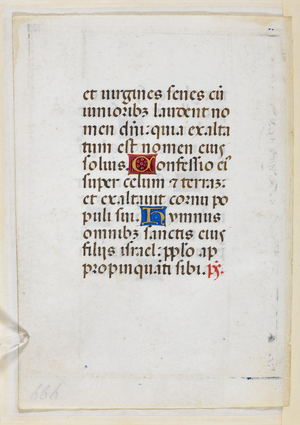 et uirgines senes cū
iunioribꝫ laudent no
men dn̄i: quia exalta
tum est nomen eius
solius. Confessio eiꝰ
super celum ⁊ terraꝫ:
et exaltauit cornu po
puli sui. Hymnus
omnibꝫ sanctis eius
filijs israel: pplo ap
propinquāti sibi. p̄s.
666